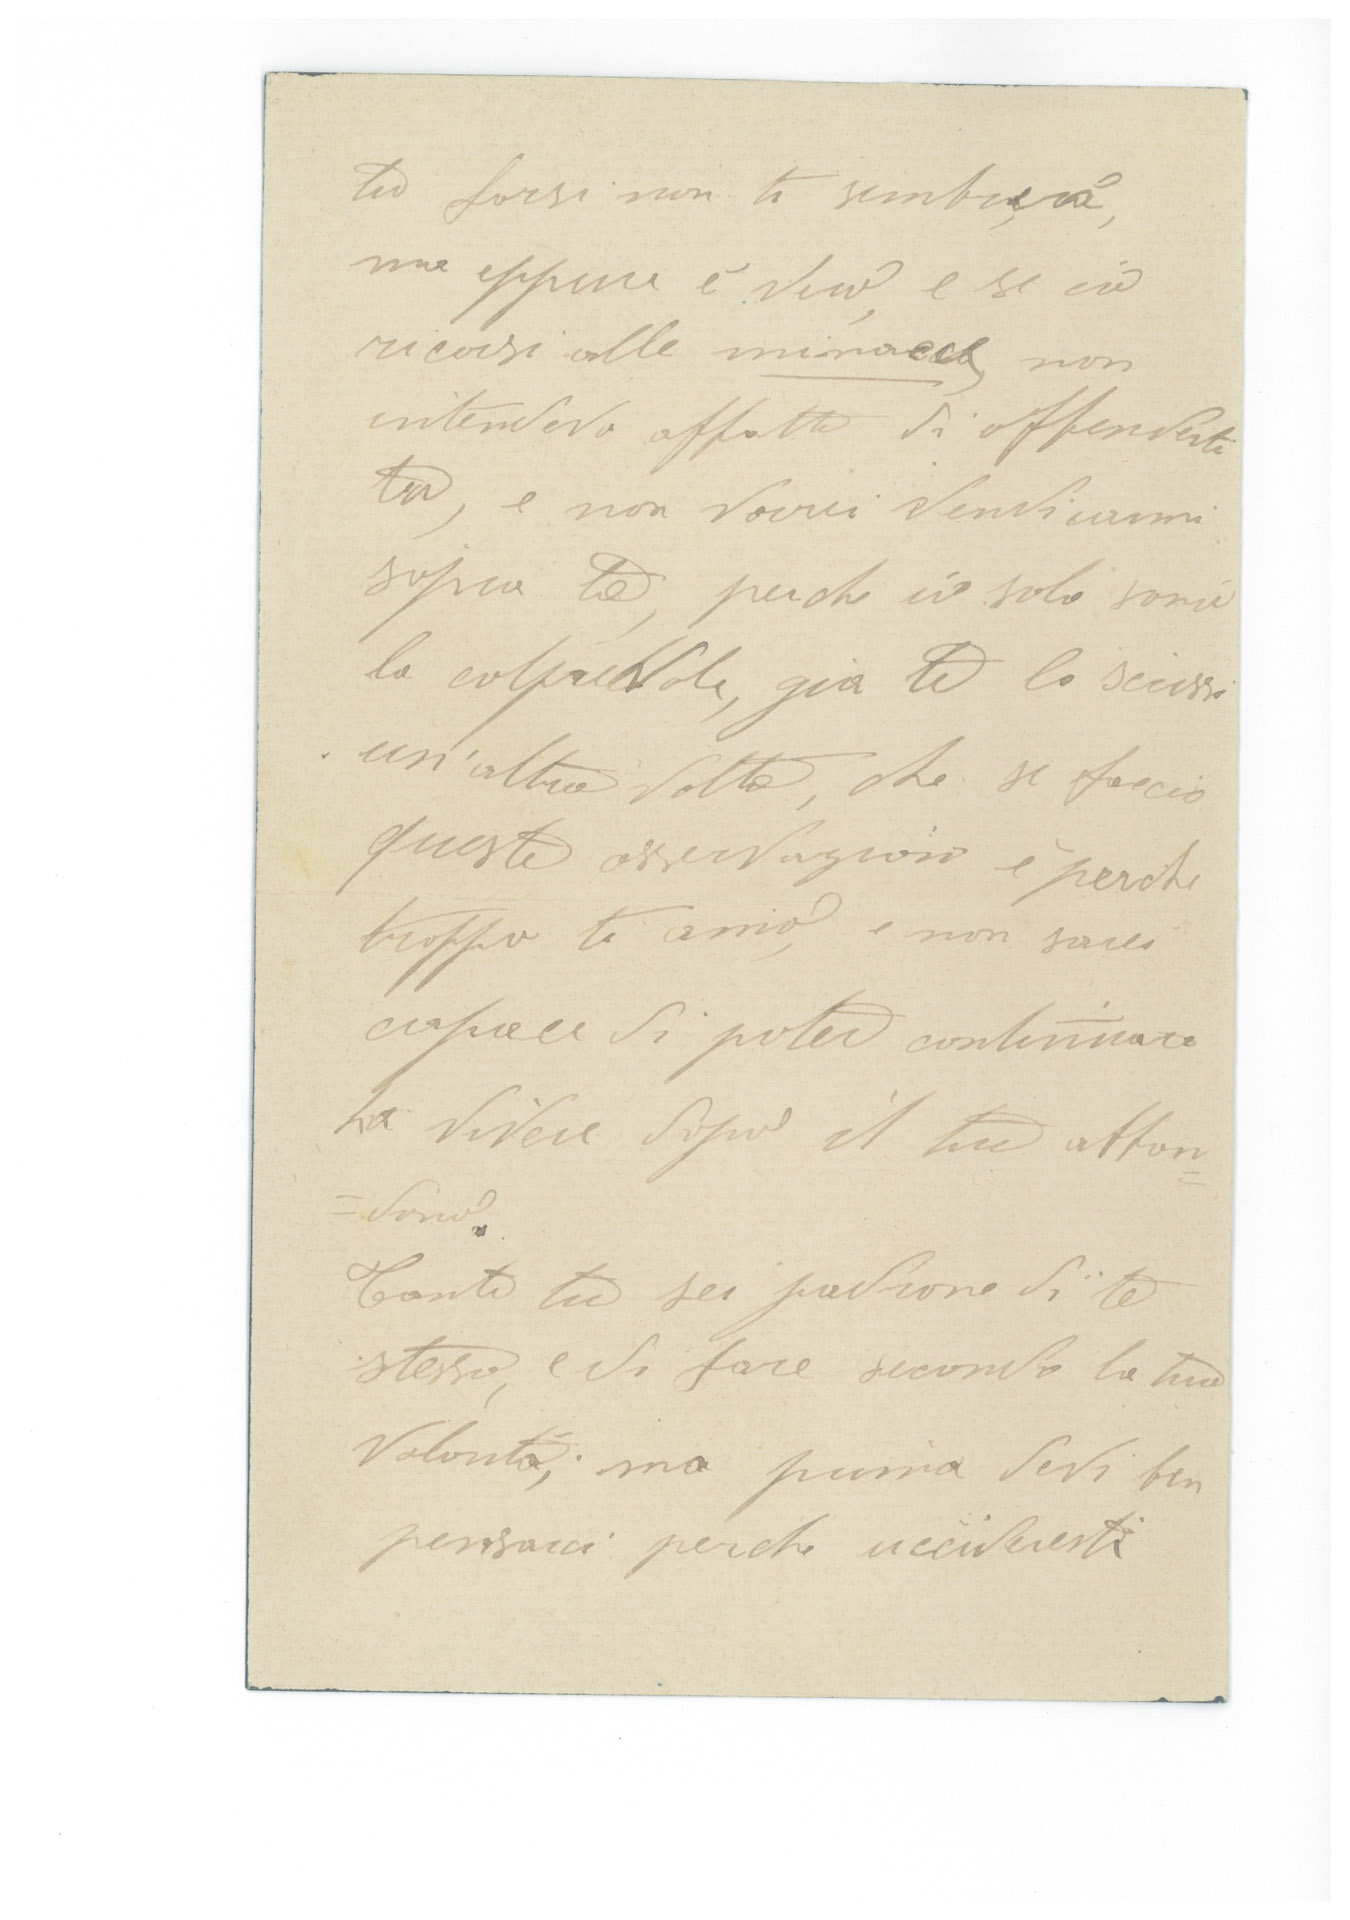 tu forsi non ti sembrerà,
ma eppure è vero, e se io
ricorsi alle minacce, non
intendevo affatto di offenderti
tu, e non vorrei vendicarmi
sopra te, perche io sola sono
la colpevole, già te lo scrissi
un'altra volta, che se faccio
queste osservazioni è perche
troppo ti amo, e non sarei
capace di poter continuare
ha vivere dopo il tuo abban=
=dono.
Tanto tu sei padrone di te
stesso, e di fare secondo la tua
volontà; ma prima devi ben
pensarci perche uccideresti